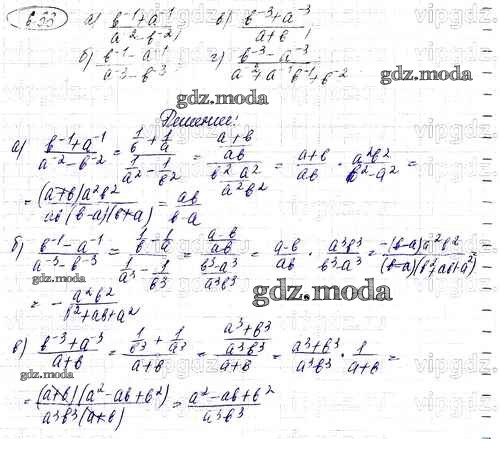 6.33 а) (b⁻¹+a⁻¹)/(a⁻²-b⁻²) в) (b⁻³+a⁻³)/(a+b)
б) (b⁻¹-a⁻¹)/(a⁻³-b⁻³) г) (b⁻³-a⁻³)/(a⁻²+a⁻¹b⁻¹+b⁻²)
gdz.moda gdz.moda
Решение:
а) (b⁻¹+a⁻¹)/(a⁻²-b⁻²) = (1/b+1/a)/(1/a²-1/b²) = ((a+b)/ab)/((b²-a²)/a²b²) = (a+b)/ab · a²b²/(b²-a²) =
= (a+b)a²b²/(ab(b-a)(b+a)) = ab/(b-a)
gdz.moda
б) (b⁻¹-a⁻¹)/(a⁻³-b⁻³) = (1/b-1/a)/(1/a³-1/b³) = ((a-b)/ab)/((b³-a³)/a³b³) = (a-b)/ab · a³b³/(b³-a³) = -(b-a)a²b²/((b-a)(b²+ab+a²))
gdz.moda
= - a²b²/(b²+ab+a²)
gdz.moda
в) (b⁻³+a⁻³)/(a+b) = (1/b³+1/a³)/(a+b) = ((a³+b³)/a³b³)/(a+b) = (a³+b³)/a³b³ · 1/(a+b) =
= (a+b)(a²-ab+b²)/(a³b³(a+b)) = (a²-ab+b²)/a³b³